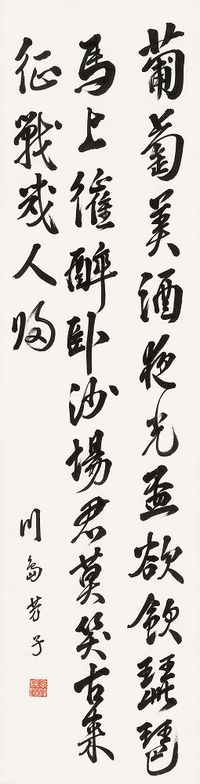 葡萄美酒夜光盃欲飲琵琶
馬上催醉臥沙場君莫笑古来
征戰幾人歸
川島芳子